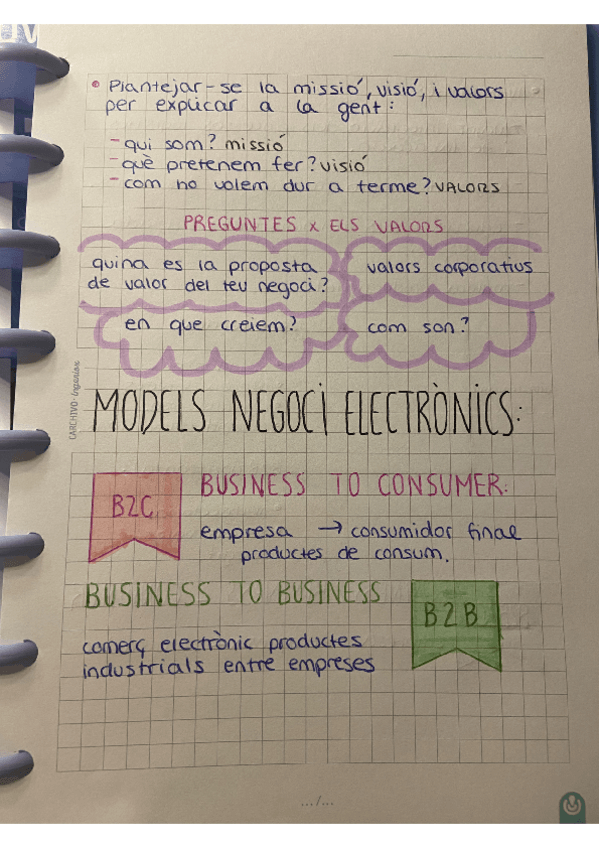 • Plantejar-se la missió, visió, i valors
per explicar a la gent:
- qui som? missió
- què pretenem fer? visió
- com ho volem dur a terme? VALORS
PREGUNTES x ELS VALORS
quina es la proposta
de valor del teu negoci?
valors corporatius
en que creiem?
com son?
CARCHIVO·Ingeniox
MODELS NEGOCI ELECTRÒNICS:
B2C
BUSINESS TO CONSUMER:
empresa → consumidor final
productes de consum.
BUSINESS TO BUSINESS
B2B
comerç electrònic productes
industrials entre empreses
.../...